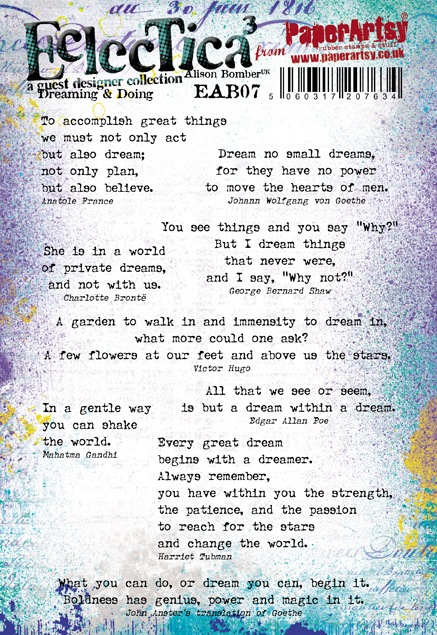 au 30 juin 18
Eclectica3
from
PaperArtsy
rubber stamps & stuff
www.paperartsy.co.uk
a guest designer collection
Alison Bomber UK
Dreaming & Doing
EAB07
5 060317 207634
To accomplish great things
we must not only act
but also dream;
not only plan,
but also believe.
Anatole France
Dream no small dreams,
for they have no power
to move the hearts of men.
Johann Wolfgang von Goethe
You see things and you say "Why?"
But I dream things
that never were,
and I say, "Why not?"
George Bernard Shaw
She is in a world
of private dreams,
and not with us.
Charlotte Brontë
A garden to walk in and immensity to dream in,
what more could one ask?
A few flowers at our feet and above us the stars.
Victor Hugo
All that we see or seem,
is but a dream within a dream.
Edgar Allan Poe
In a gentle way
you can shake
the world.
Mahatma Gandhi
Every great dream
begins with a dreamer.
Always remember,
you have within you the strength,
the patience, and the passion
to reach for the stars
and change the world.
Harriet Tubman
What you can do, or dream you can, begin it.
Boldness has genius, power and magic in it.
John Anster's translation of Goethe